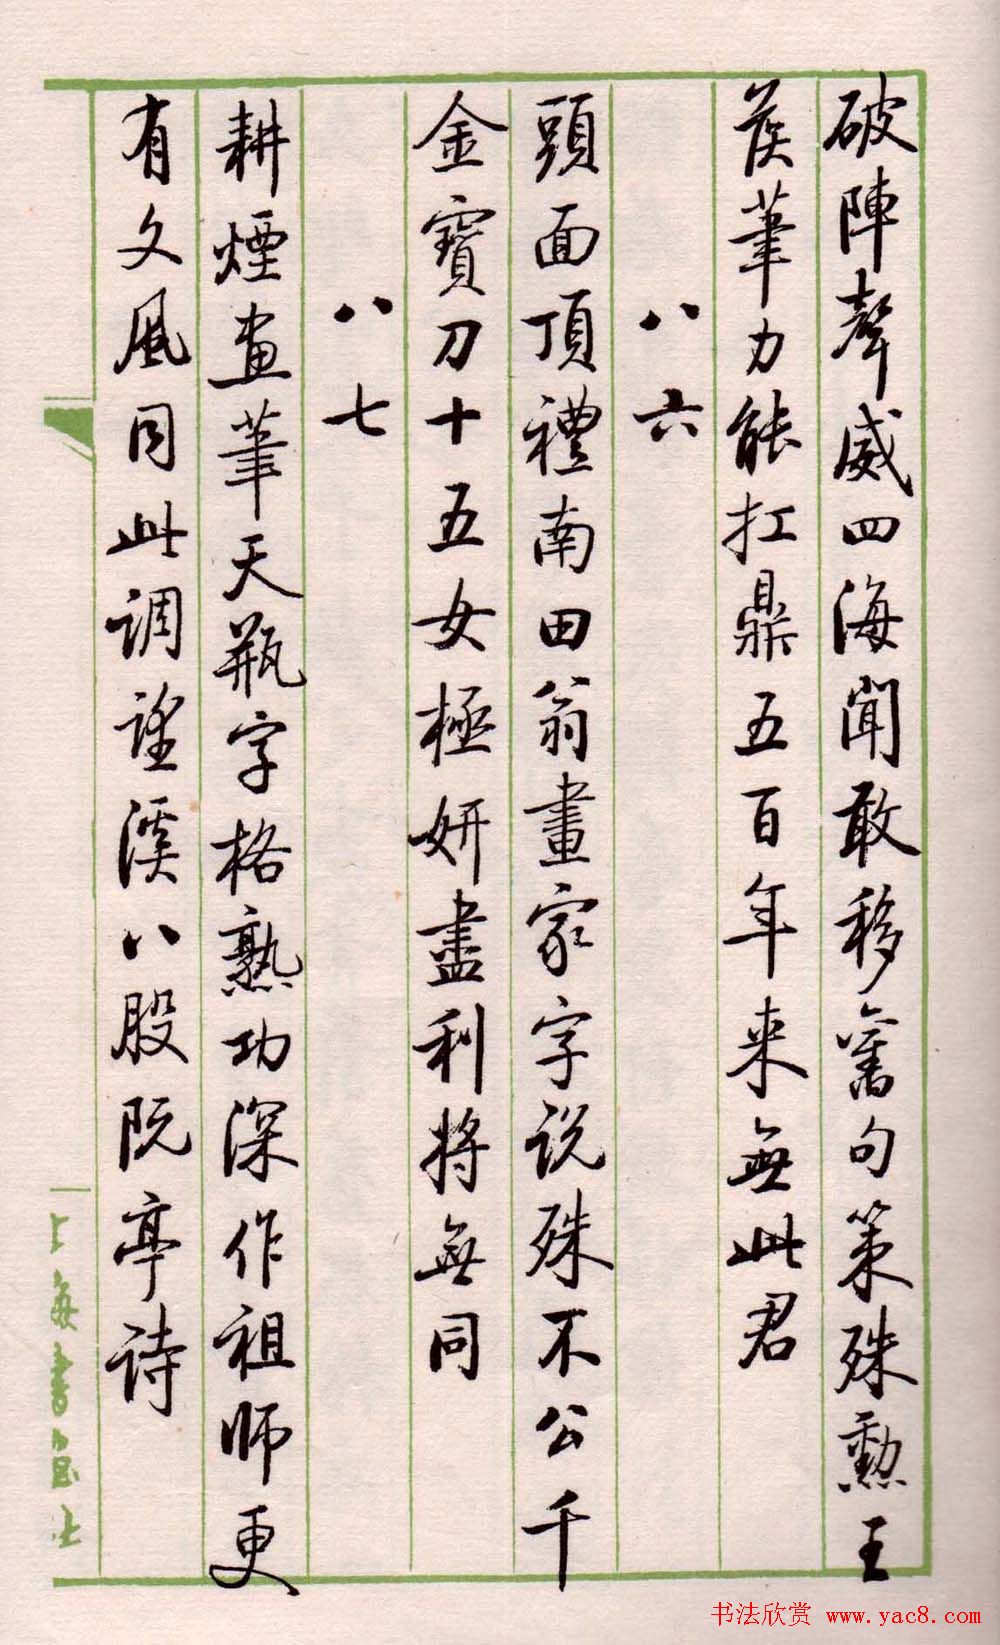 破陣聲威四海聞敢移舊句策殊勲王
侯筆力能扛鼎五百年来無此君
八六
頭面頂禮南田翁畫家字説殊不公千
金寶刀十五女極妍盡利將無同
八七
耕煙畫筆天瓶字格熟功深作祖師更
有文風同此調望溪八股阮亭詩
上海書画社
书法欣赏 www.yac8.com